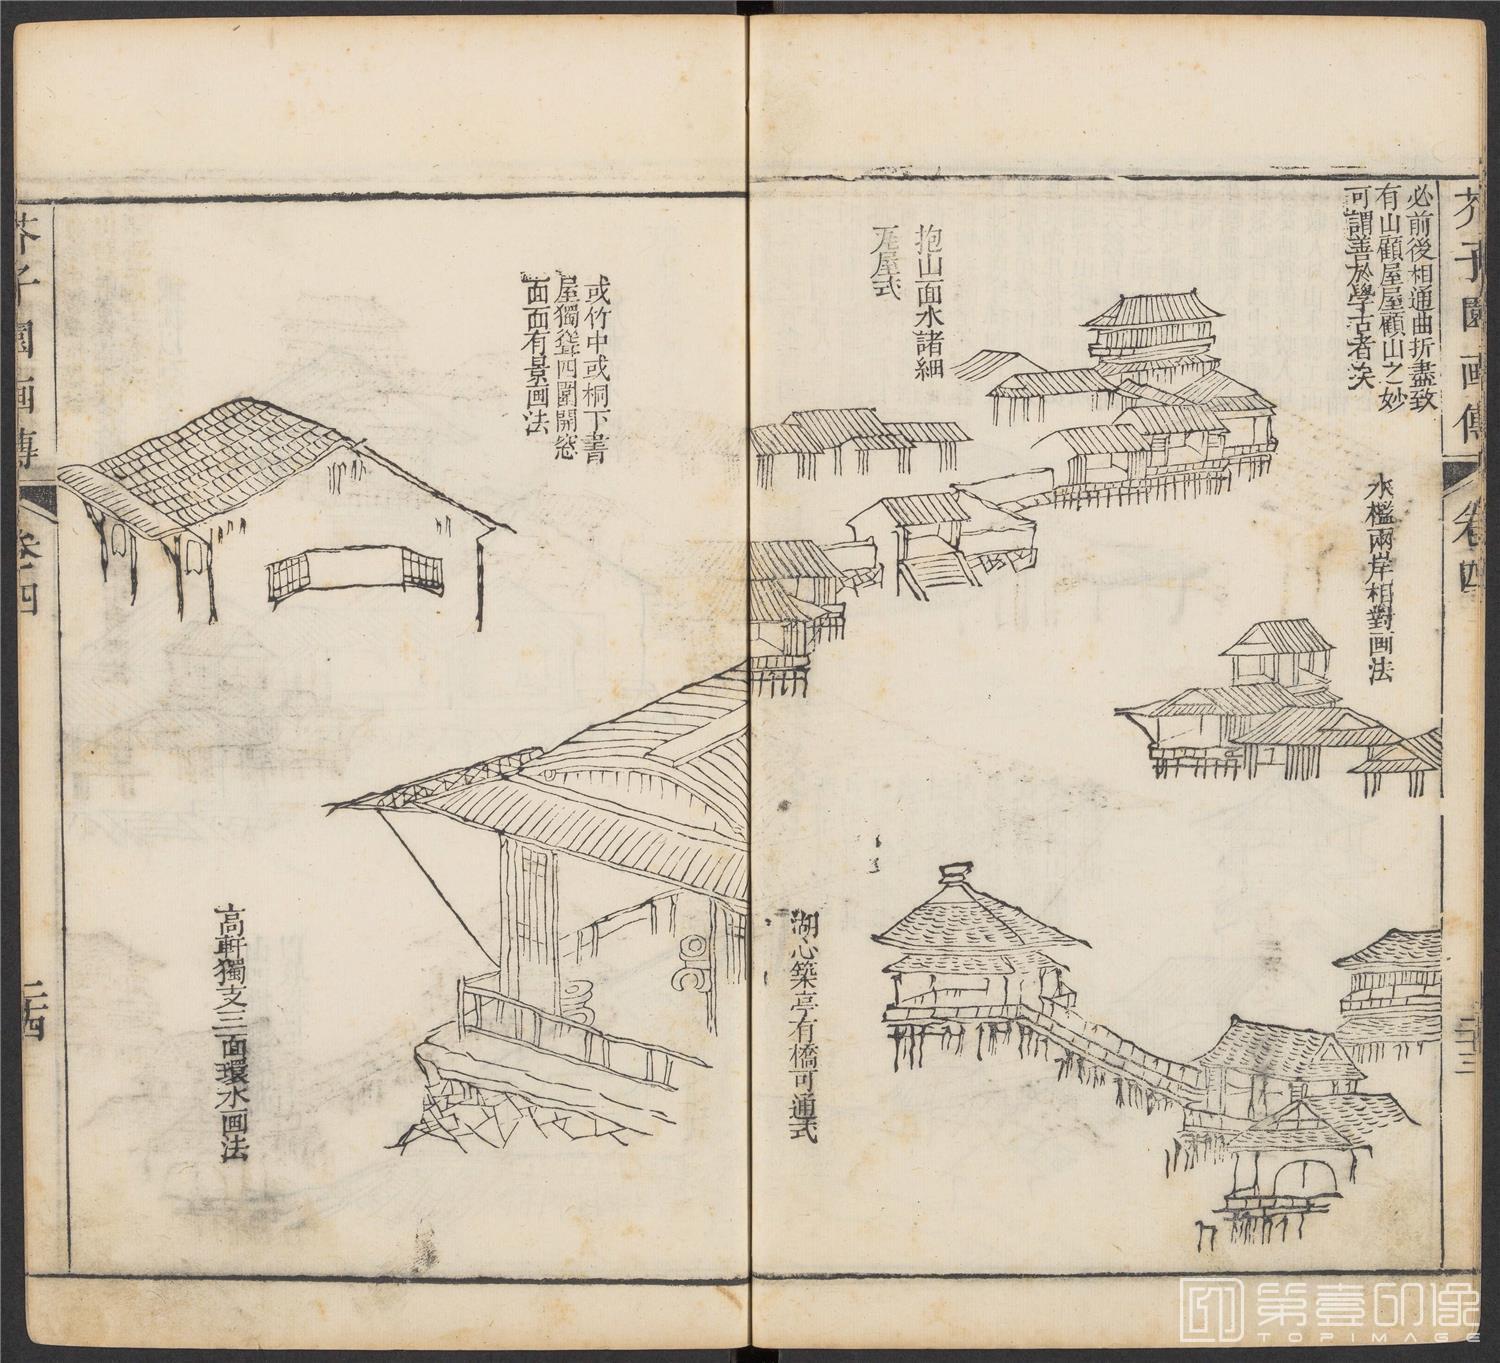 芥子園画傳
卷四
二十三
必前後相通曲折盡致
有山顧屋屋顧山之妙
可謂善於學古者矣
水檻兩岸相對画法
抱山面水諸細
瓦屋式
湖心築亭有橋可通式
或竹中或桐下書
屋獨聳四圍開窓
面面有景画法
高軒獨支三面環水画法
芥子園画傳
卷四
二十四
第壹印像
TOPIMAGE